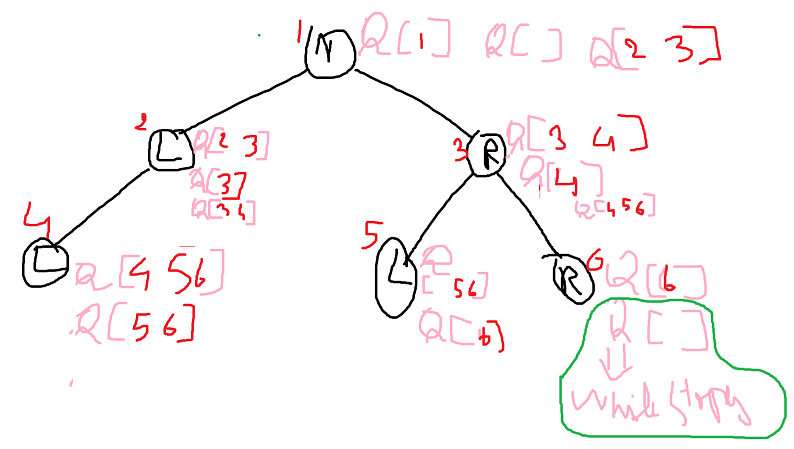 1 N Q[1] Q[ ] Q[2 3]
2 L Q[2 3]
Q[3]
Q[3 4]
3 R Q[3 4]
Q[4]
Q[4 5 6]
4 L Q[4 5 6]
Q[5 6]
5 L Q[ 5 6]
Q[6]
6 R Q[6]
Q[ ]
While stops